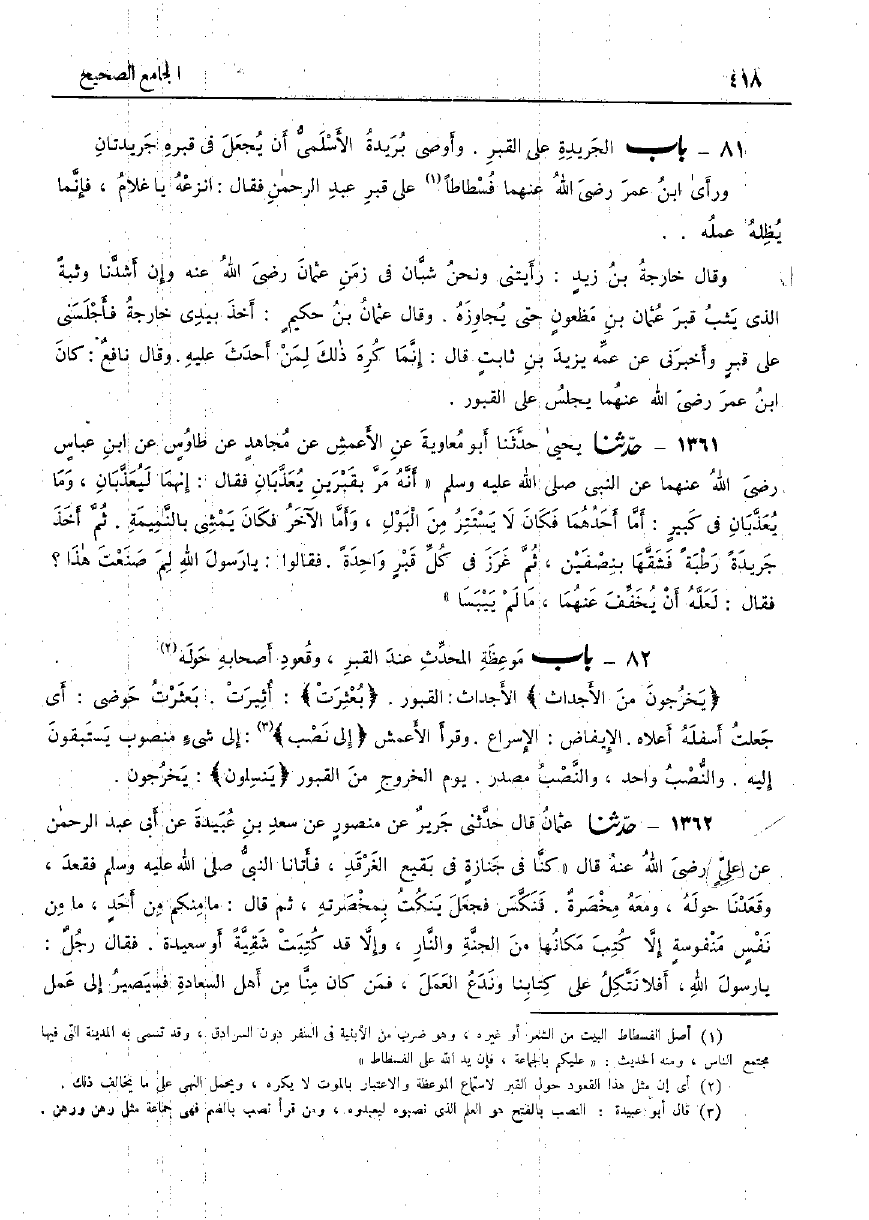 ٤١٨ الجامع الصحيح
٨١ - باب الجَريدِةِ على القبرِ . وأوصى بُرَيدةُ الأَسْلَمىُّ أن يُجعَلَ فى قبرهِ جَريدتانِ
ورأَىٰ ابنُ عمرَ رضىَ اللهُ عنهما فُسْطاطاً(١) على قبرِ عبدِ الرحمٰنِ فقال : انزعْهُ ياغلامُ ، فإنَّما
يُظِلهُ عملُه . .
وقال خارجةُ بنُ زيدٍ : رأَيتنى ونحنُ شبَّان فى زمَنِ عثمانَ رضىَ اللهُ عنه وإن أشدَّنا وثبةً
الذى يَثبُ قبرَ عُثمان بنِ مَظعونٍ حتى يُجاوِزَهُ . وقال عثمانُ بنُ حكيمٍ : أَخذَ بيدِى خارجةُ فأَجْلَسَنى
على قبرٍ وأَخبرَنى عن عمِّه يزيدَ بنِ ثابتٍ قال : إنَّما كُرِهَ ذٰلكَ لِمَنْ أَحدَثَ عليهِ . وقال نافعٌ : كانَ
ابنُ عمرَ رضىَ الله عنهما يجلسُ على القبور .
١٣٦١ - حدّثنا يحيىٰ حدَّثَنا أبو مُعاويةَ عنِ الأَعمشِ عن مُجاهدٍ عن طاوُسٍ عن ابنِ عباسٍ
رضىَ اللهُ عنهما عن النبى صلى الله عليه وسلم « أَنَّهُ مَرَّ بقَبْرَينِ يُعَذَّبَانِ فقال : إنهمَا لَيُعَذَّبَانِ ، وَمَا
يُعَذَّبَانِ فى كَبيرٍ : أَمَّا أَحَدُهُمَا فَكَانَ لَا يَسْتَتِرُ مِنَ الْبَوْلِ ، وَأَمَّا الآخَرُ فكَانَ يَمْشِى بالنَّمِيمَةِ . ثُمَّ أَخَذَ
جَرِيدَةً رَطْبَةً فَشَقَّهَا بِنِصْفَيْنِ ، ثُمَّ غَرَزَ فى كُلِّ قَبْرٍ وَاحِدَةً . فقالوا : يارَسولَ اللهِ لِمَ صَنَعْتَ هٰذا ؟
فقال : لَعَلَّهُ أَنْ يُخَفَّفَ عَنهُمَا ، مَا لَمْ يَيْبَسَا »
٨٢ - باب مَوعِظَةِ المحدِّثِ عندَ القبرِ ، وقُعودِ أصحابِهِ حَولَه(٢)
﴿يَخرُجونَ منَ الأَجداث﴾ الأَجداث : القبور . ﴿بُعْثِرَتْ﴾ : أُثِيرَتْ . بَعثَرْتُ حَوضى : أَى
جَعلتُ أَسفلَهُ أعلاه . الإيفاض : الإسراع . وقرأَ الأعمش ﴿إلى نَصْب﴾(٣) : إلى شىءٍ منصوب يَستَبقونَ
إليه . والنُّصْبُ واحد ، والنَّصْبُ مصدر . يوم الخروجِ منَ القبور ﴿يَنسِلون﴾ : يَخرُجون .
١٣٦٢ - حدّثنا عثمانُ قال حدَّثنى جَريرٌ عن منصورٍ عن سعدِ بنِ عُبَيدةَ عن أبى عبد الرحمٰن
عن علىٍّ رضىَ اللهُ عنهُ قال « كنَّا فى جَنازةٍ فى بَقيعِ الغَرْقَدِ ، فأَتانا النبىُّ صلى الله عليه وسلم فقعدَ ،
وقَعَدْنَا حولَهُ ، ومعَهُ مِخْصَرةٌ . فَنَكَّسَ فجعلَ يَنكُتُ بِمِخْصَرتهِ ، ثم قال : مامِنكم مِن أَحَدٍ ، ما مِن
نَفْسٍ مَنْفوسةٍ إلَّا كُتِبَ مَكانُها منَ الجنَّةِ والنَّارِ ، وإلَّا قد كُتِبَتْ شَقِيَّةً أو سعيدة . فقال رجُلٌ :
يارسولَ اللهِ ، أَفلا نَتَّكِلُ على كِتابِنا ونَدَعُ العَمَلَ ، فمَن كان مِنَّا مِن أهل السعادةِ فسَيَصيرُ إلى عَمل
(١) أصل الفسطاط البيت من الشعر أو غيره ، وهو ضرب من الأبنية فى السفر دون السرادق ، وقد تسمى به المدينة التى فيها
مجتمع الناس ، ومنه الحديث : « عليكم بالجماعة ، فإن يد الله على الفسطاط »
(٢) أى إن مثل هذا القعود حول القبر لاستماع الموعظة والاعتبار بالموت لا يكره ، ويحمل النهى على ما يخالف ذلك .
(٣) قال أبو عبيدة : النصب بالفتح هو العلم الذى نصبوه ليعبدوه ، ومن قرأ نصب بالضم فهى جماعة مثل رهن ورهن .